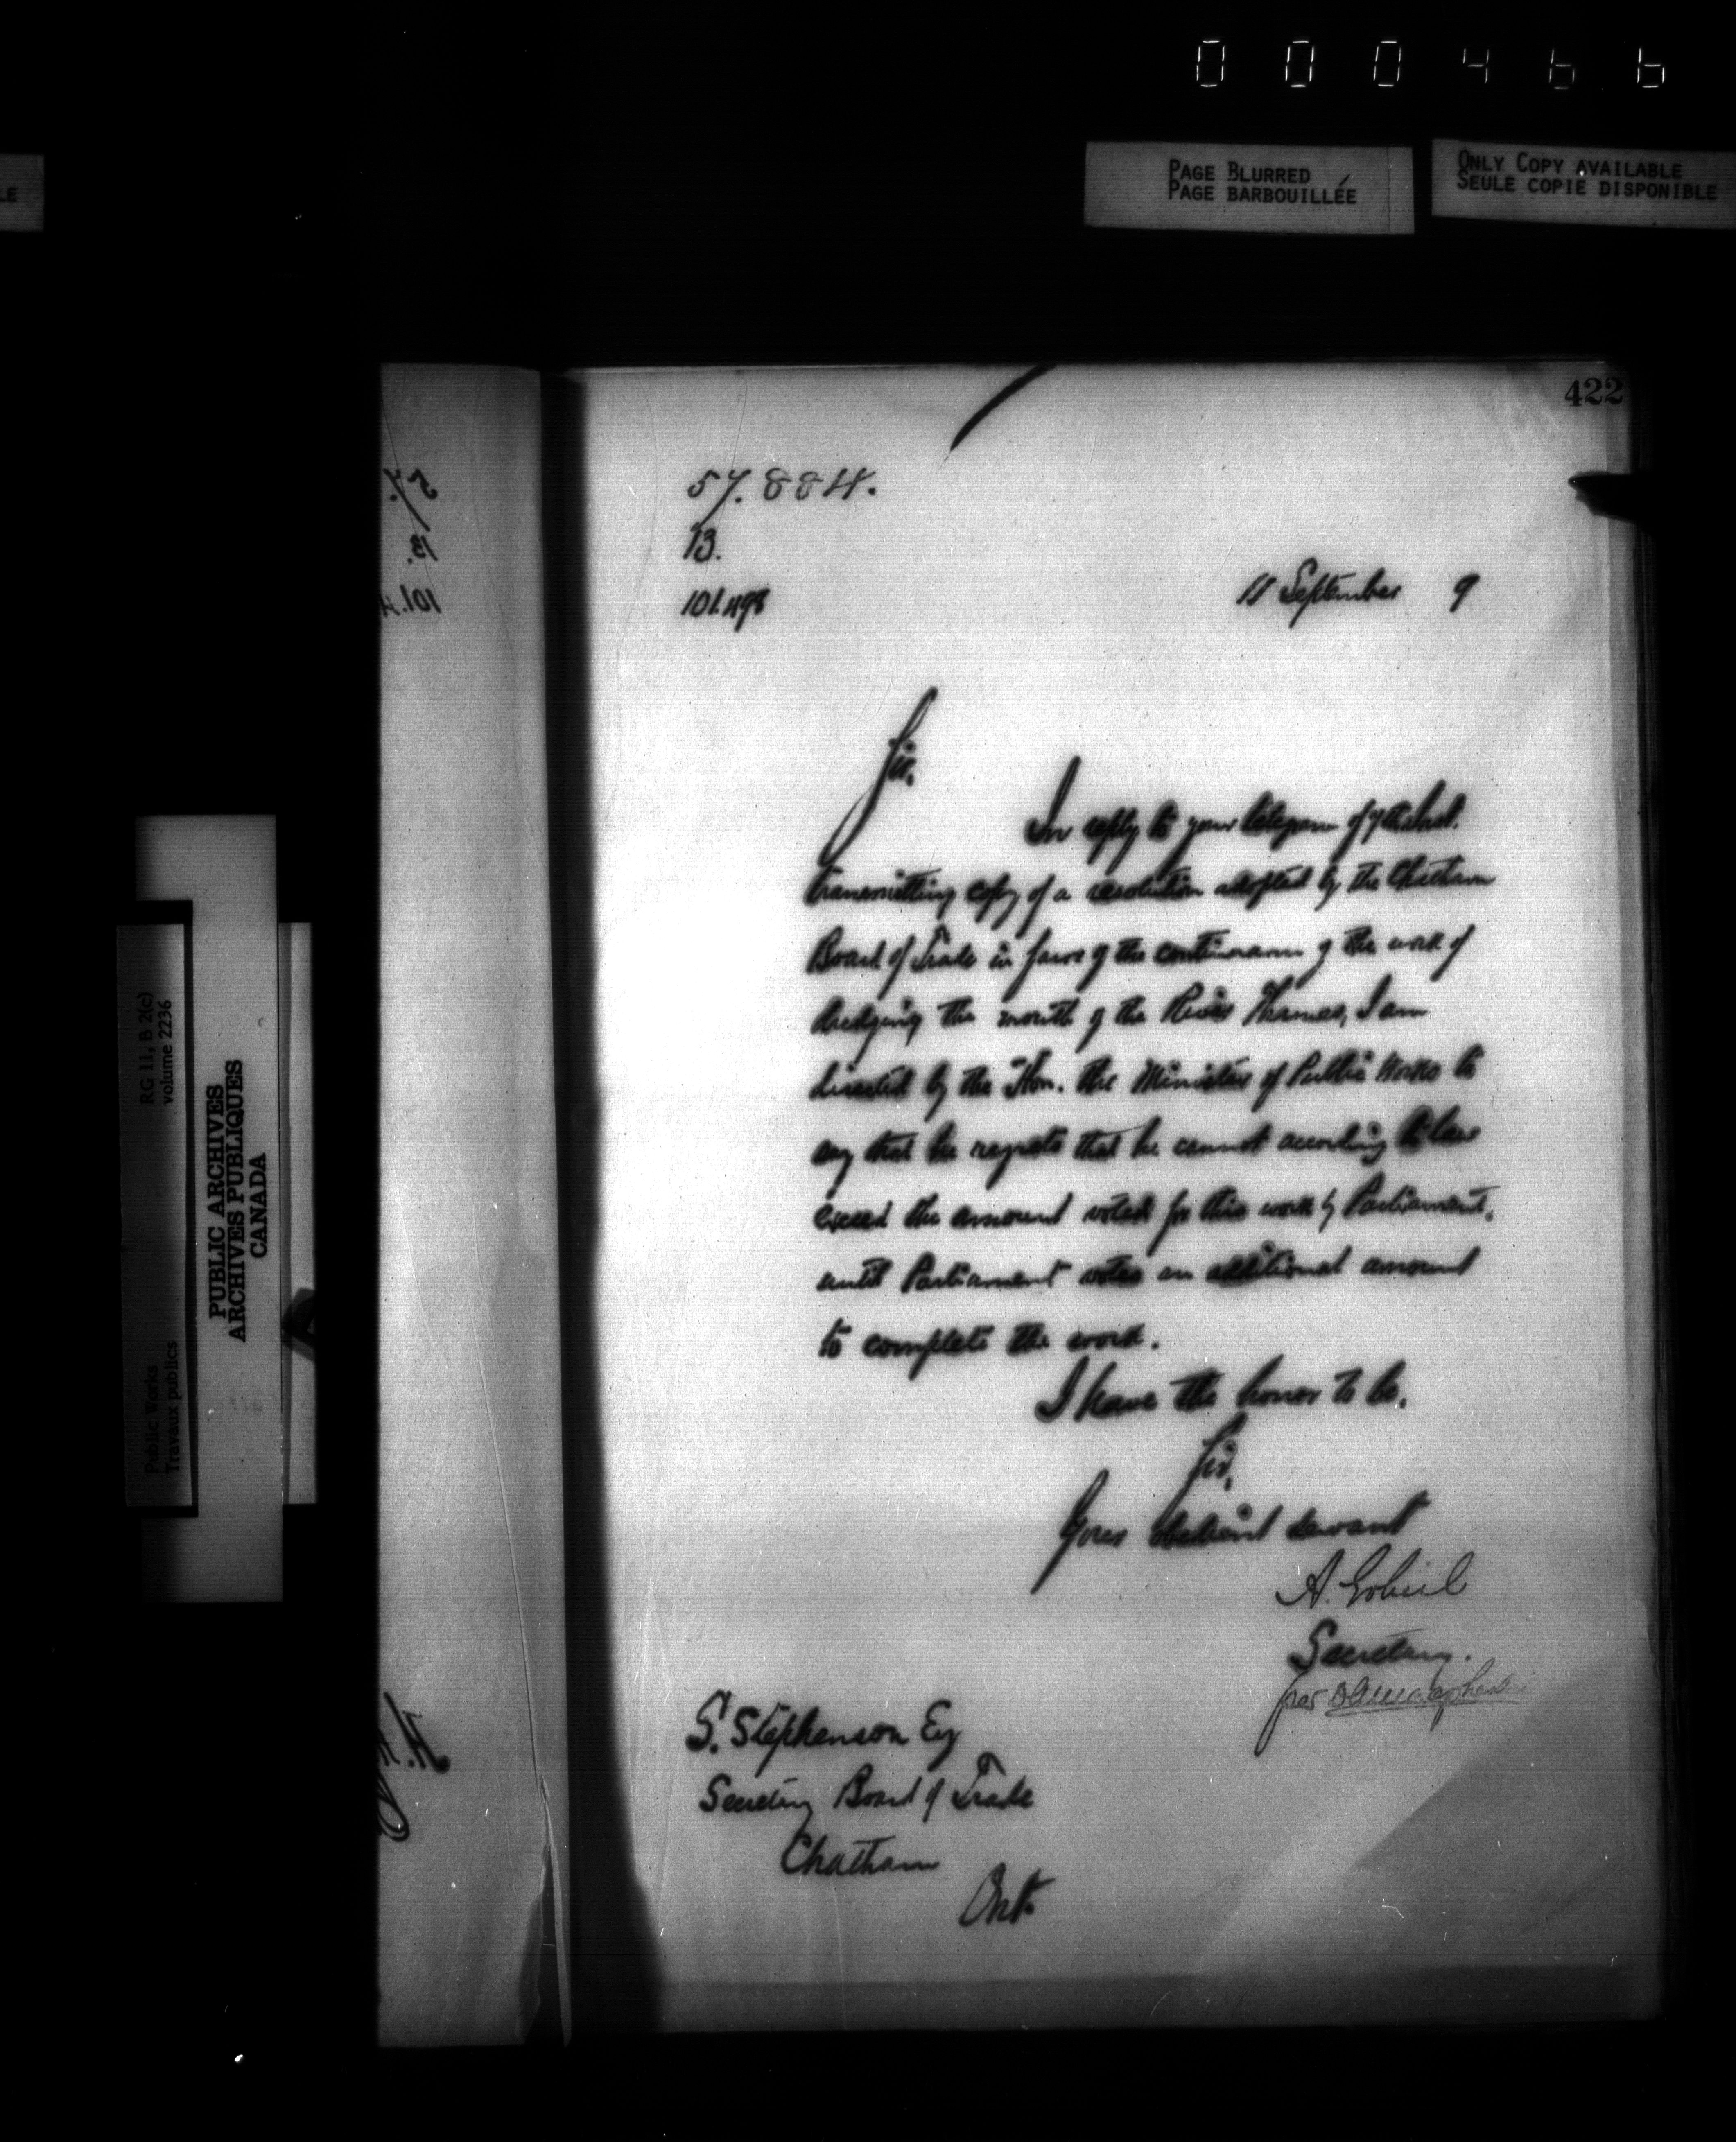 000466
PAGE BLURRED
PAGE BARBOUILLÉE
ONLY COPY AVAILABLE
SEULE COPIE DISPONIBLE
LE
422
57.884.
B.
101.498
11 September 9
Sir,
In reply to your telegram of 7th inst.
transmitting copy of a resolution adopted by the Chatham
Board of Trade in favor of the continuance of the work of
dredging the mouth of the River Thames, I am
directed by the Hon. the Minister of Public Works to
say that he regrets that he cannot according to law
exceed the amount voted for this work by Parliament,
until Parliament votes an additional amount
to complete the work.
I have the honor to be,
Sir,
Your obedient servant
A. Gobeil
Secretary.
per
S. Stephenson Esq
Secretary Board of Trade
Chatham
Ont.
RG 11, B 2(c)
volume 2236
Public Works
Travaux publics
PUBLIC ARCHIVES
ARCHIVES PUBLIQUES
CANADA